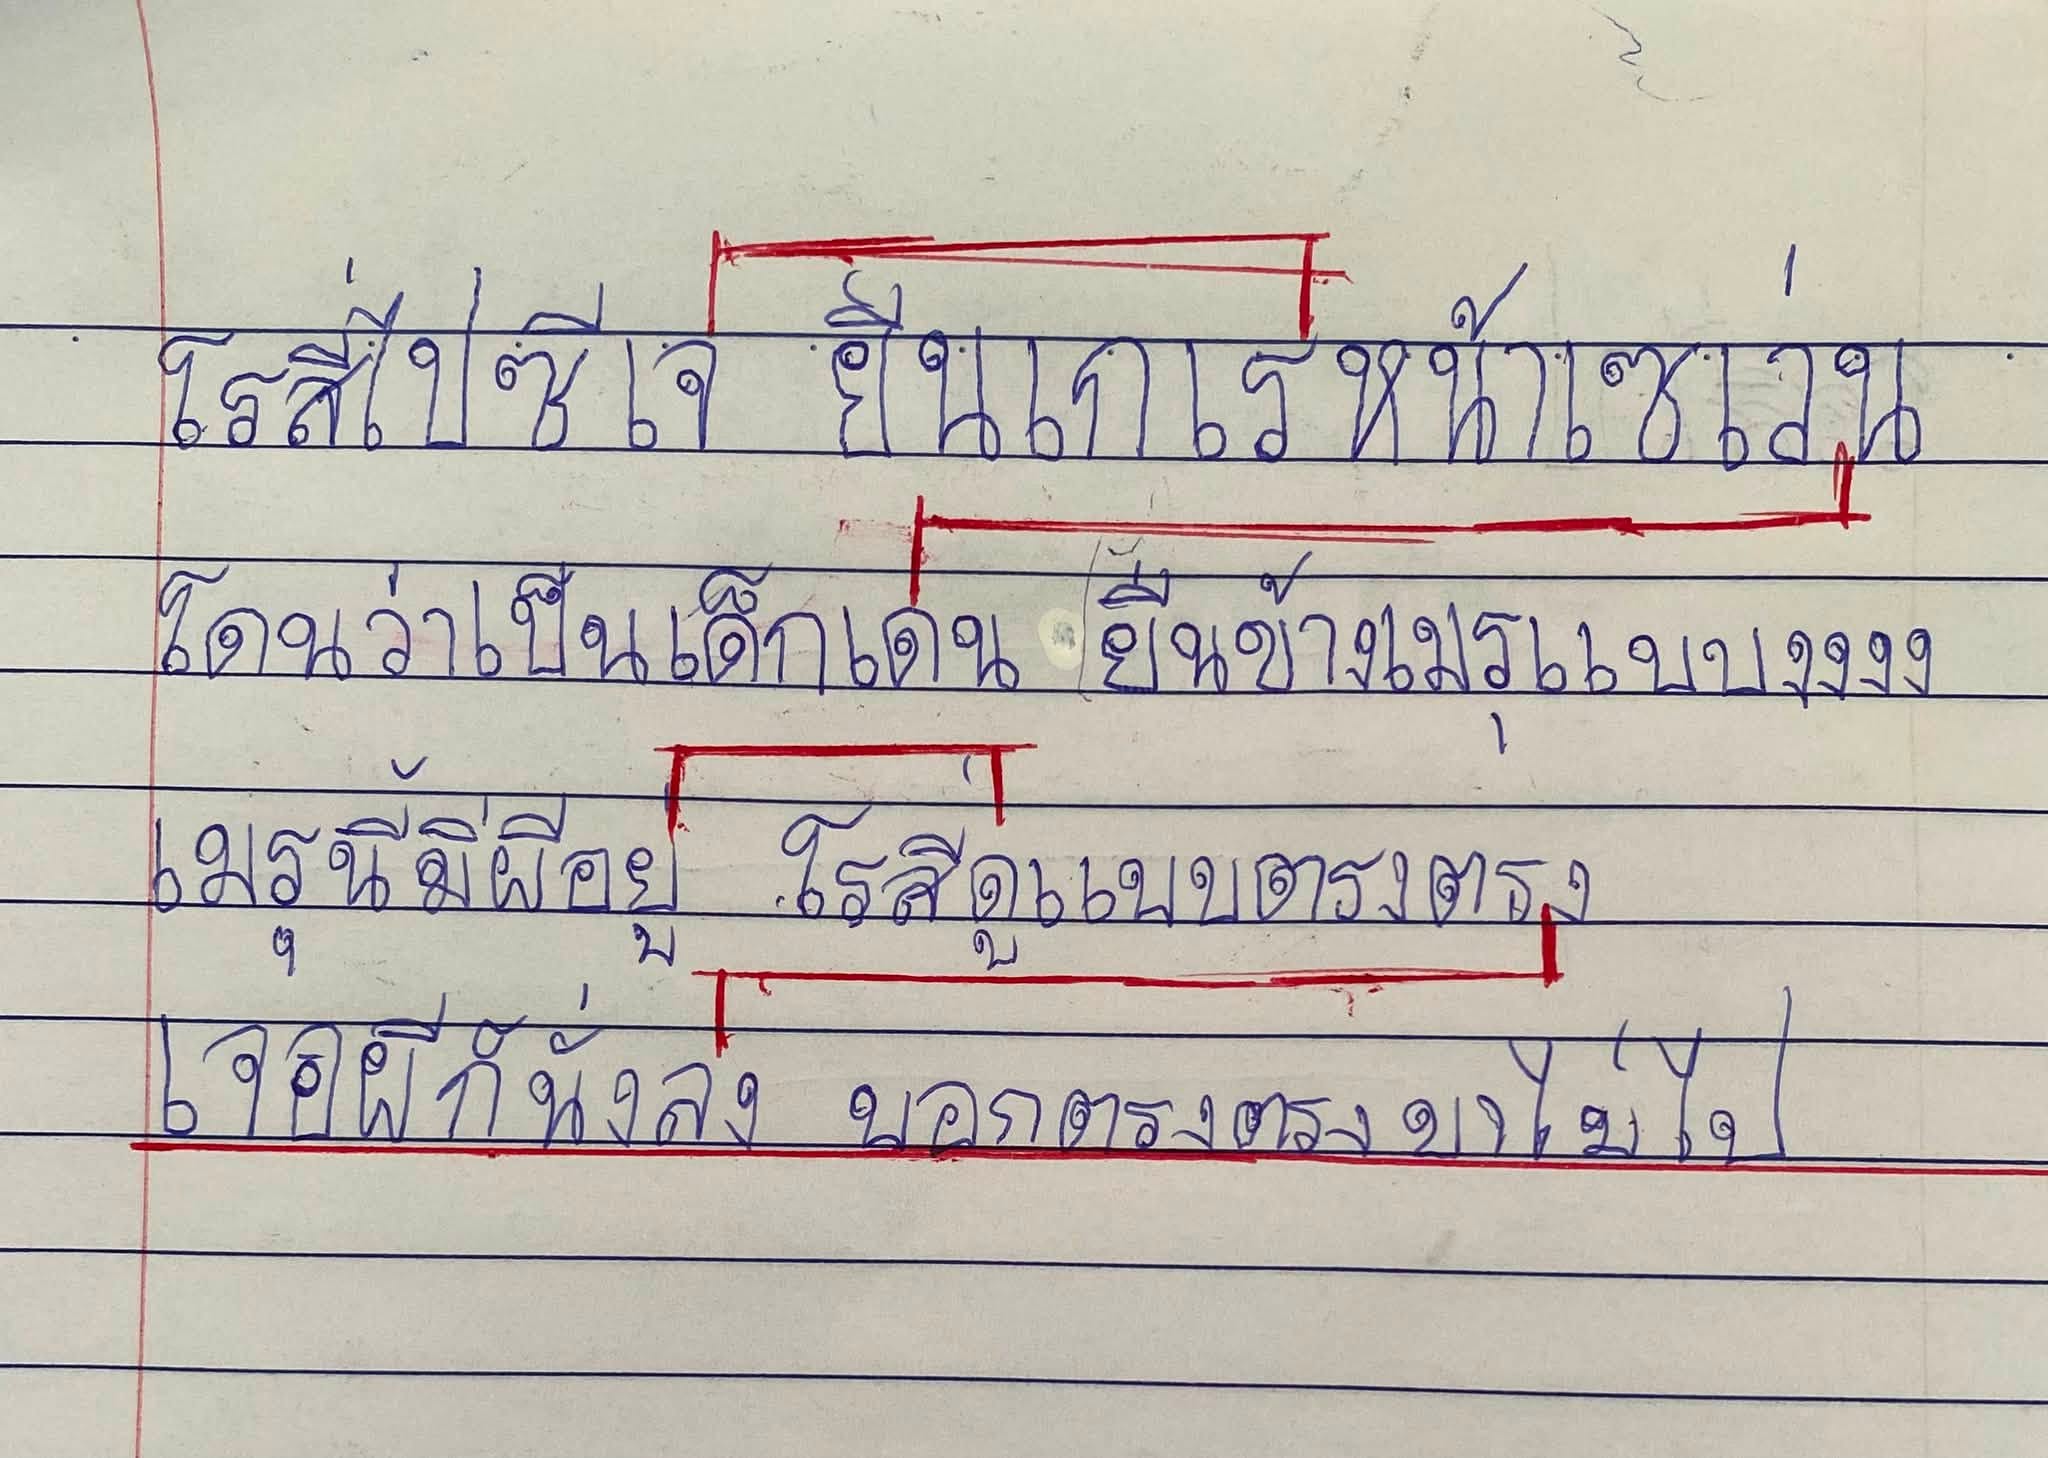 โรสี่ไปซีเจ ยืนเกเรหน้าเซเว่น
โดนว่าเป็นเด็กเดน ยืนข้างเมรุแบบงงงง
เมรุนี้มีผีอยู่ โรสี่ดูแบบตรงตรง
เจอผีก็นั่งลง บอกตรงตรงขาไม่ไป